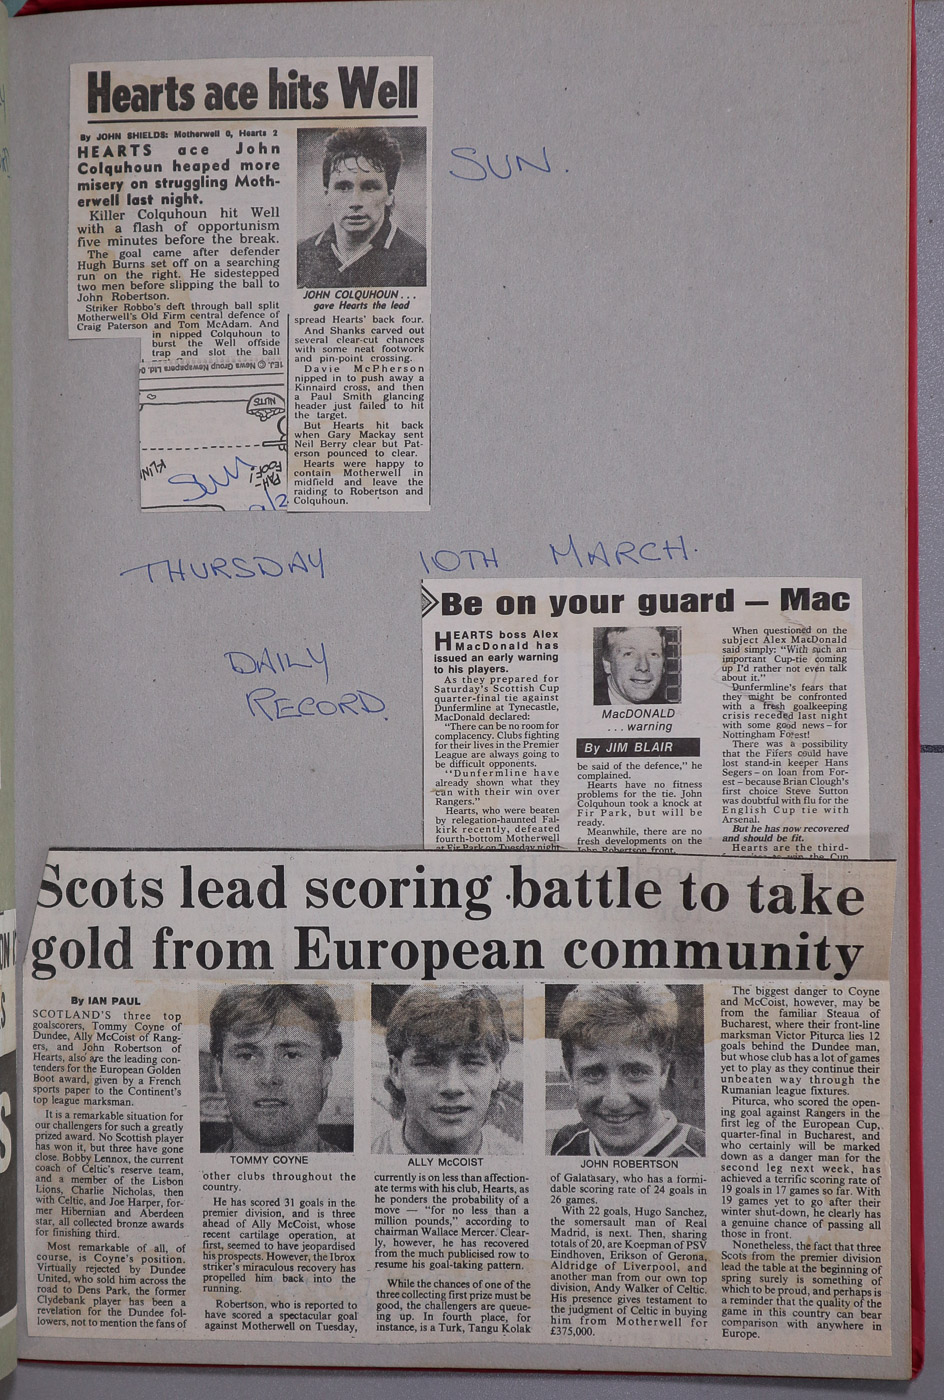 Hearts ace hits Well
By JOHN SHIELDS: Motherwell 0, Hearts 2
HEARTS ace John
Colquhoun heaped more
misery on struggling Moth-
erwell last night.
Killer Colquhoun hit Well
with a flash of opportunism
five minutes before the break.
The goal came after defender
Hugh Burns set off on a searching
run on the right. He sidestepped
two men before slipping the ball to
John Robertson.
Striker Robbo's deft through ball split
Motherwell's Old Firm central defence of
Craig Paterson and Tom McAdam. And
in nipped Colquhoun to
burst the Well offside
trap and slot the ball
JOHN COLQUHOUN...
gave Hearts the lead
spread Hearts' back four.
And Shanks carved out
several clear-cut chances
with some neat footwork
and pin-point crossing.
Davie McPherson
nipped in to push away a
Kinnaird cross, and then
a Paul Smith glancing
header just failed to hit
the target.
But Hearts hit back
when Gary Mackay sent
Neil Berry clear but Pat-
erson pounced to clear.
Hearts were happy to
contain Motherwell in
midfield and leave the
raiding to Robertson and
Colquhoun.
1EJ © News Group Newspapers Ltd.
NUTS
PAH-
POOF!
SUN
SUN.
THURSDAY 10TH MARCH.
DAILY
RECORD.
Be on your guard – Mac
HEARTS boss Alex
MacDonald has
issued an early warning
to his players.
As they prepared for
Saturday's Scottish Cup
quarter-final tie against
Dunfermline at Tynecastle,
MacDonald declared:
"There can be no room for
complacency. Clubs fighting
for their lives in the Premier
League are always going to
be difficult opponents.
"Dunfermline have
already shown what they
can with their win over
Rangers."
Hearts, who were beaten
by relegation-haunted Fal-
kirk recently, defeated
fourth-bottom Motherwell
at Fir Park on Tuesday night
MacDONALD
... warning
By JIM BLAIR
be said of the defence," he
complained.
Hearts have no fitness
problems for the tie. John
Colquhoun took a knock at
Fir Park, but will be
ready.
Meanwhile, there are no
fresh developments on the
John Robertson front.
When questioned on the
subject Alex MacDonald
said simply: "With such an
important Cup-tie coming
up I'd rather not even talk
about it."
Dunfermline's fears that
they might be confronted
with a fresh goalkeeping
crisis receded last night
with some good news – for
Nottingham Forest!
There was a possibility
that the Fifers could have
lost stand-in keeper Hans
Segers – on loan from For-
est – because Brian Clough's
first choice Steve Sutton
was doubtful with flu for the
English Cup tie with
Arsenal.
But he has now recovered
and should be fit.
Hearts are the third-
Scots lead scoring battle to take
gold from European community
By IAN PAUL
SCOTLAND'S three top
goalscorers, Tommy Coyne of
Dundee, Ally McCoist of Rang-
ers, and John Robertson of
Hearts, also are the leading con-
tenders for the European Golden
Boot award, given by a French
sports paper to the Continent's
top league marksman.
It is a remarkable situation for
our challengers for such a greatly
prized award. No Scottish player
has won it, but three have gone
close. Bobby Lennox, the current
coach of Celtic's reserve team,
and a member of the Lisbon
Lions, Charlie Nicholas, then
with Celtic, and Joe Harper, for-
mer Hibernian and Aberdeen
star, all collected bronze awards
for finishing third.
Most remarkable of all, of
course, is Coyne's position.
Virtually rejected by Dundee
United, who sold him across the
road to Dens Park, the former
Clydebank player has been a
revelation for the Dundee fol-
lowers, not to mention the fans of
TOMMY COYNE
other clubs throughout the
country.
He has scored 31 goals in the
premier division, and is three
ahead of Ally McCoist, whose
recent cartilage operation, at
first, seemed to have jeopardised
his prospects. However, the Ibrox
striker's miraculous recovery has
propelled him back into the
running.
Robertson, who is reported to
have scored a spectacular goal
against Motherwell on Tuesday,
ALLY McCOIST
currently is on less than affection-
ate terms with his club, Hearts, as
he ponders the probability of a
move — "for no less than a
million pounds," according to
chairman Wallace Mercer. Clear-
ly, however, he has recovered
from the much publicised row to
resume his goal-taking pattern.
While the chances of one of the
three collecting first prize must be
good, the challengers are queue-
ing up. In fourth place, for
instance, is a Turk, Tangu Kolak
JOHN ROBERTSON
of Galatasary, who has a formi-
dable scoring rate of 24 goals in
26 games.
With 22 goals, Hugo Sanchez,
the somersault man of Real
Madrid, is next. Then, sharing
totals of 20, are Koepman of PSV
Eindhoven, Erikson of Gerona,
Aldridge of Liverpool, and
another man from our own top
division, Andy Walker of Celtic.
His presence gives testament to
the judgment of Celtic in buying
him from Motherwell for
£375,000.
The biggest danger to Coyne
and McCoist, however, may be
from the familiar Steaua of
Bucharest, where their front-line
marksman Victor Piturca lies 12
goals behind the Dundee man,
but whose club has a lot of games
yet to play as they continue their
unbeaten way through the
Rumanian league fixtures.
Piturca, who scored the open-
ing goal against Rangers in the
first leg of the European Cup,
quarter-final in Bucharest, and
who certainly will be marked
down as a danger man for the
second leg next week, has
achieved a terrific scoring rate of
19 goals in 17 games so far. With
19 games yet to go after their
winter shut-down, he clearly has
a genuine chance of passing all
those in front.
Nonetheless, the fact that three
Scots from the premier division
lead the table at the beginning of
spring surely is something of
which to be proud, and perhaps is
a reminder that the quality of the
game in this country can bear
comparison with anywhere in
Europe.